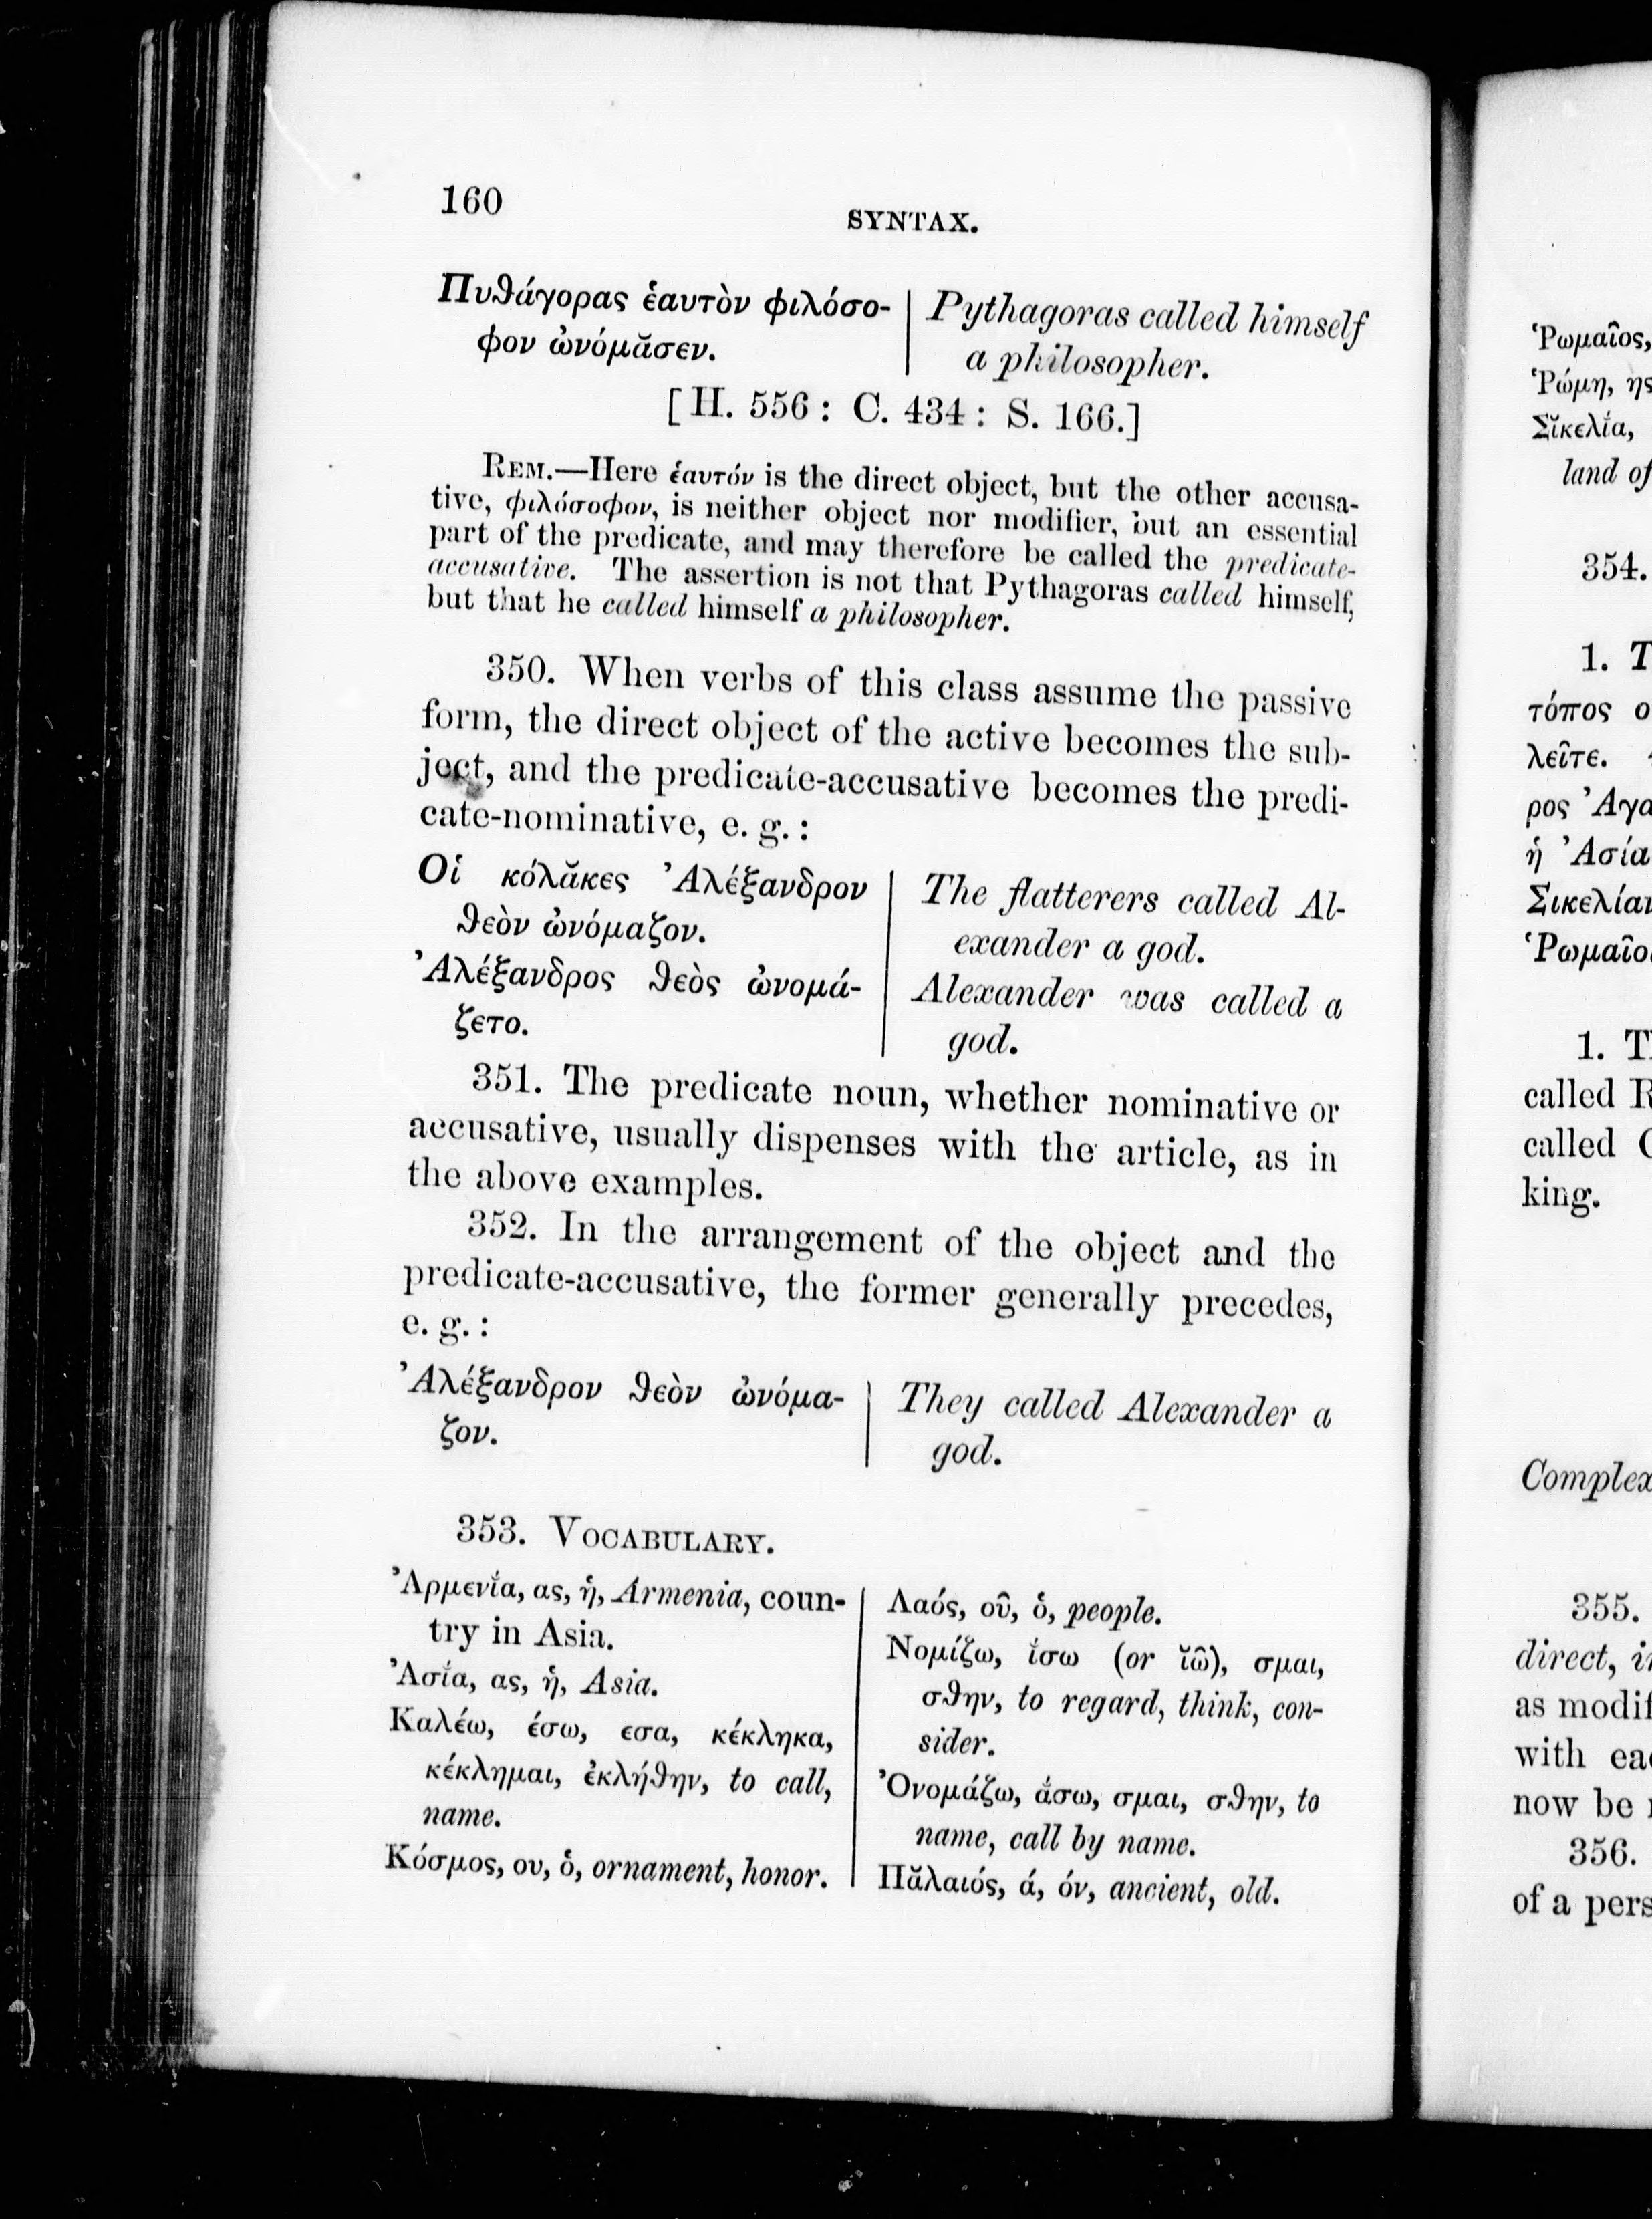 160
SYNTAX.
Πυϑάγορας ἑαυτὸν φιλόσο-
φον ὠνόμᾰσεν.
Pythagoras called himself
a philosopher.
[H. 556 : C. 434 : S. 166.]
REM.—Here ἑαυτόν is the direct object, but the other accusa-
tive, φιλόσοφον, is neither object nor modifier, but an essential
part of the predicate, and may therefore be called the predicate-
accusative. The assertion is not that Pythagoras called himself,
but that he called himself a philosopher.
350. When verbs of this class assume the passive
form, the direct object of the active becomes the sub-
ject, and the predicate-accusative becomes the predi-
cate-nominative, e. g. :
Οἱ κόλᾰκες Ἀλέξανδρον
ϑεὸν ὠνόμαζον.
Ἀλέξανδρος ϑεὸς ὠνομά-
ζετο.
The flatterers called Al-
exander a god.
Alexander was called a
god.
351. The predicate noun, whether nominative or
accusative, usually dispenses with the article, as in
the above examples.
352. In the arrangement of the object and the
predicate-accusative, the former generally precedes,
e. g. :
Ἀλέξανδρον ϑεὸν ὠνόμα-
ζον.
They called Alexander a
god.
353. VOCABULARY.
Ἀρμενῐ́α, ας, ἡ, Armenia, coun-
try in Asia.
Ἀσῐ́α, ας, ἡ, Asia.
Καλέω, έσω, εσα, κέκληκα,
κέκλημαι, ἐκλήϑην, to call,
name.
Κόσμος, ου, ὁ, ornament, honor.
Λαός, οῦ, ὁ, people.
Νομίζω, ῐ́σω (or ῐῶ), σμαι,
σϑην, to regard, think, con-
sider.
Ὀνομάζω, ᾰ́σω, σμαι, σϑην, to
name, call by name.
Πᾰλαιός, ά, όν, ancient, old.
Ῥωμαῖος,
Ῥώμη, ης
Σῐκελῐ́α,
land of
354.
1.
τόπος
λεῖτε.
ρος
ἡ Ἀσία
Σικελίαν
1.
called
called
king.
Complex
355.
direct,
as
with
now be
356.
of a